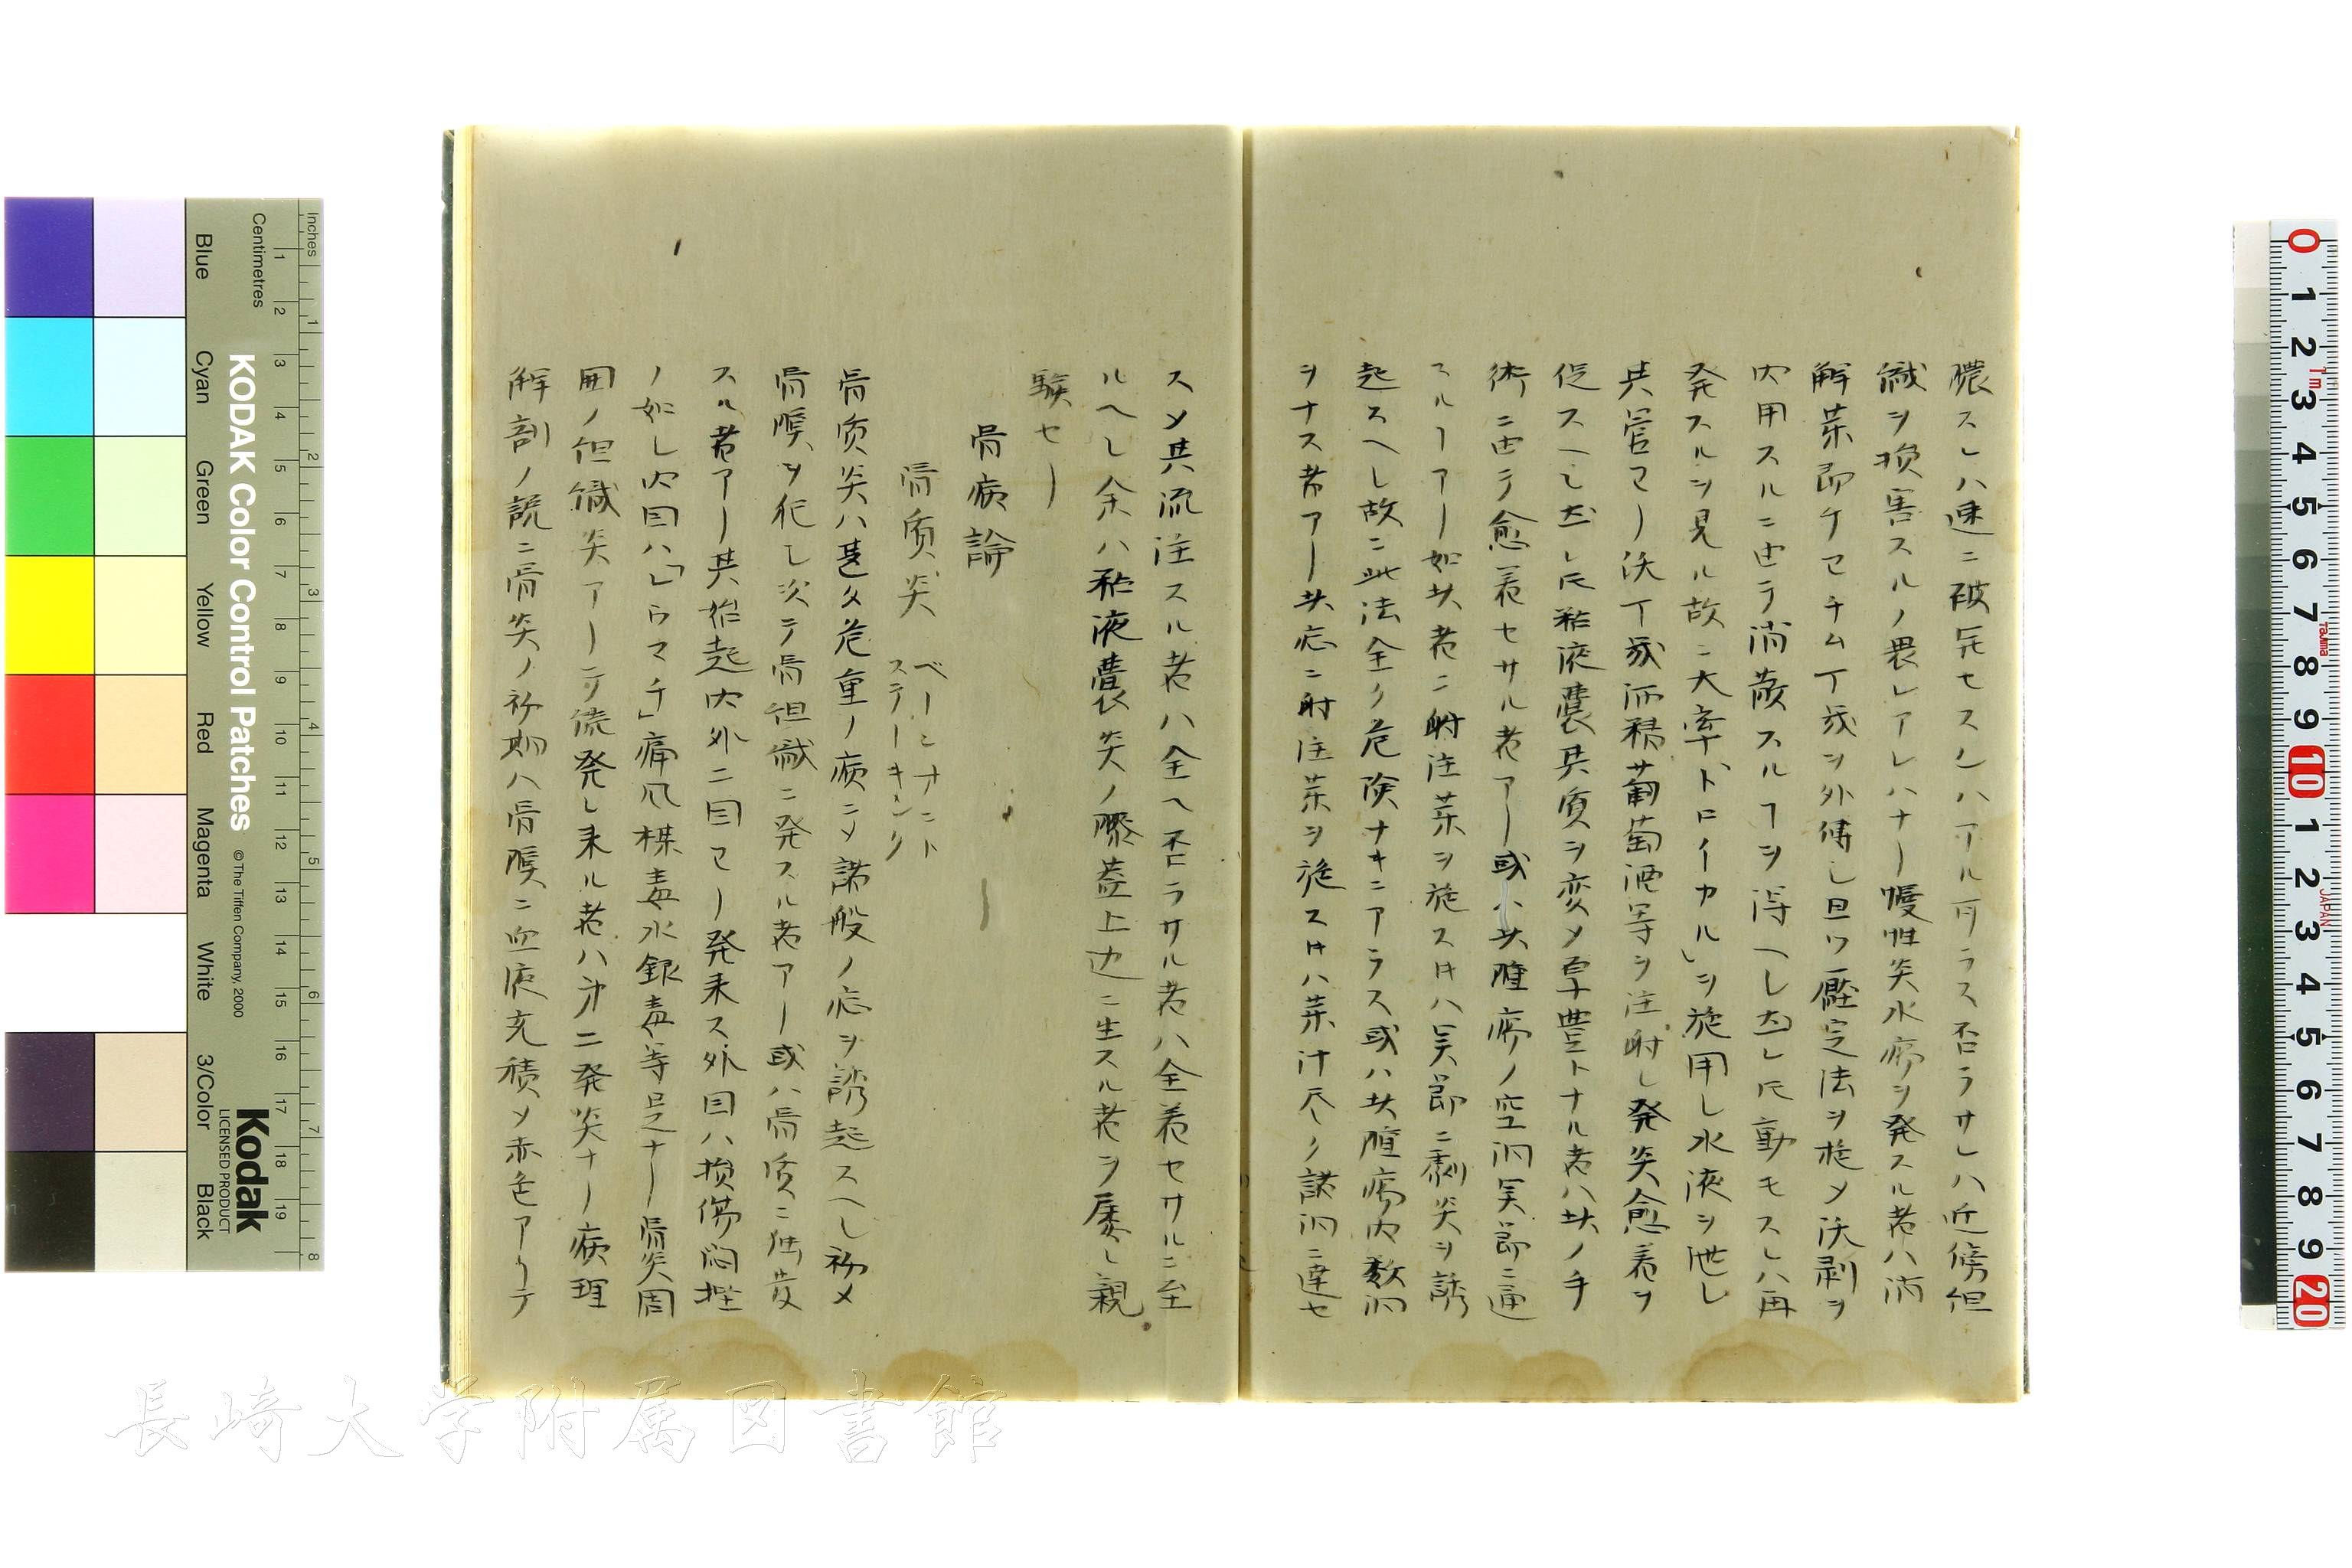 膿スレハ速ニ破開セスンハアル可ラス否ラサレハ近傍但
織ヲ損害スルノ畏レアレハナリ慢性炎水瘍ヲ発スル者ハ消
解薬即ケマチム丁幾ヲ外傅シ且ツ壓定法ヲ施メ沃剥ヲ
内用スルニ由テ消散スルヿヲ得ヘシ然レ𪜈動モスレハ再
発スルヲ見ル故ニ大率「トロイカル」ヲ施用し水液ヲ泄し
其管ヨリ沃丁幾沥積葡萄酒等ヲ注射し発炎愈着ヲ
促スヘし然レ𪜈粘液嚢其質ヲ変メ草豊トナル者ハ此ノ手
術ニ由テ愈着セサル者アリ或ハ此腫瘍ノ空洞関節ニ通
スルヿアリ如此者ニ射注薬ヲ施スキハ関節ニ劇炎ヲ誘
起スヘし故ニ此法全ク危険ナキニアラス或ハ此腫瘍内数洞
ヲナス者アリ此症ニ射注薬ヲ施スキハ薬汁尽ク諸洞ニ達セ
スメ其流注スル者ハ全ヘ否ラサル者ハ全着セサルニ至
ルヘし余ハ粘液嚢炎ノ膝蓋上辺ニ生スル者ヲ屡し親
験セリ
骨病論
骨質炎 ベーンナーント
ステーキング
骨質炎ハ甚タ危重ノ病ニメ諸般ノ症ヲ誘起スヘし初メ
骨膜ヲ犯し次テ骨但織ニ発スル者アリ或ハ骨質ニ独発
スル者アリ其始起内外二因ヨリ発来ス外因ハ損傷悶挫
ノ如し内因ハ「レウマチ」痛風楳毒水銀毒等是ナリ骨炎周
囲ノ但織炎アリテ続発し来ル者ハ第二発炎ナリ病理
解剖ノ説ニ骨炎ノ初期ハ骨膜ニ血液充積メ赤色アリテ
Inches
Centimetres
KODAK Color Control Patches
©The Tiffen Company, 2000
Kodak
LICENSED PRODUCT
Blue
Cyan
Green
Yellow
Red
Magenta
White
3/Color
Black
長崎大学附属図書館